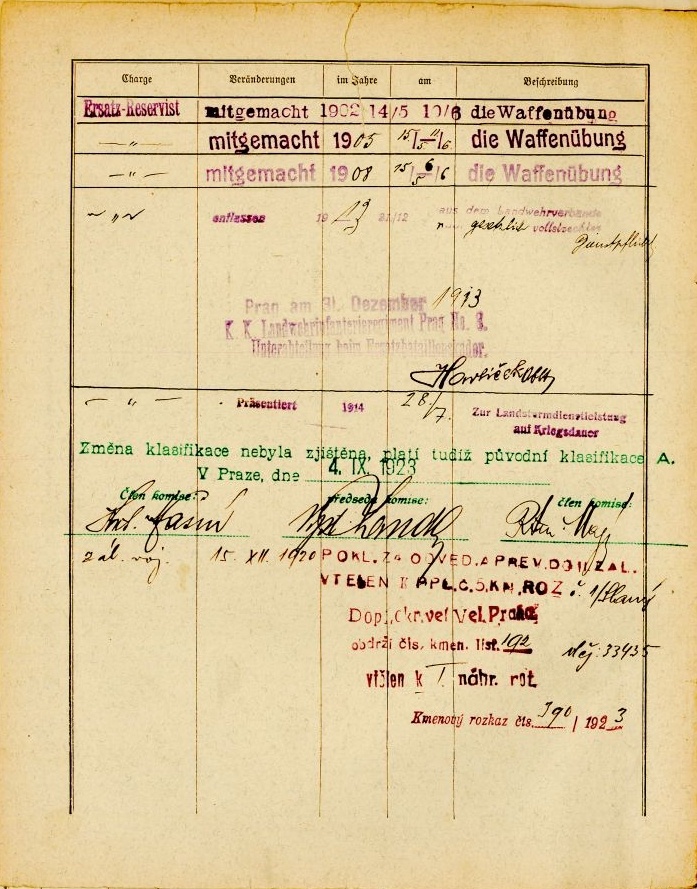 Charge Veränderungen im Jahre am Beschreibung
Ersatz-Reservist mitgemacht 1902 14/5 10/6 die Waffenübung
— " — mitgemacht 1905 die Waffenübung
— " — mitgemacht 1908 die Waffenübung
— " — entlassen 19 13 31/12 aus dem Landwehrverbande
n. gestellt vollstreckter
Dienstpflicht
Prag am 31. Dezember 1913
K. K. Landwehrinfanterieregiment Prag No. 8.
Unterabteilung beim Ersatzbataillonskader.
Havlíček Oblt
— " — Präsentiert 1914 28./7. Zur Landsturmdienstleistung
auf Kriegsdauer
Změna klasifikace nebyla zjištěna, platí tudíž původní klasifikace A.
V Praze, dne 4. IX. 1923
Člen komise: předseda komise: člen komise:
zál. voj. 15. XII. 1920 POKL. ZA ODVED. A PREV. DO II ZAL.
VTĚLEN K PPL. Č. 5. KN. ROZ č. 1/Slaný
Dopl. okr. vel Vel. Praha
obdrží čís. kmen. list. 192 děj: 33435
vtělen k I náhr. rot.
Kmenový rozkaz čís. 390 / 1923